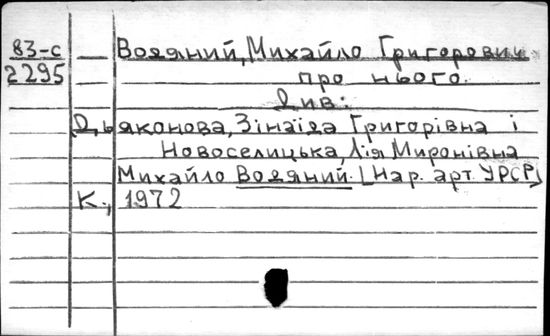 83-с Водяний, Михайло Григорович
2295 про нього.
Див:
Дьяконова, Зінаїда Григорівна і
Новоселицька, Лія Миронівна
Михайло Водяний. [Нар. арт. УРСР]
К., 1972